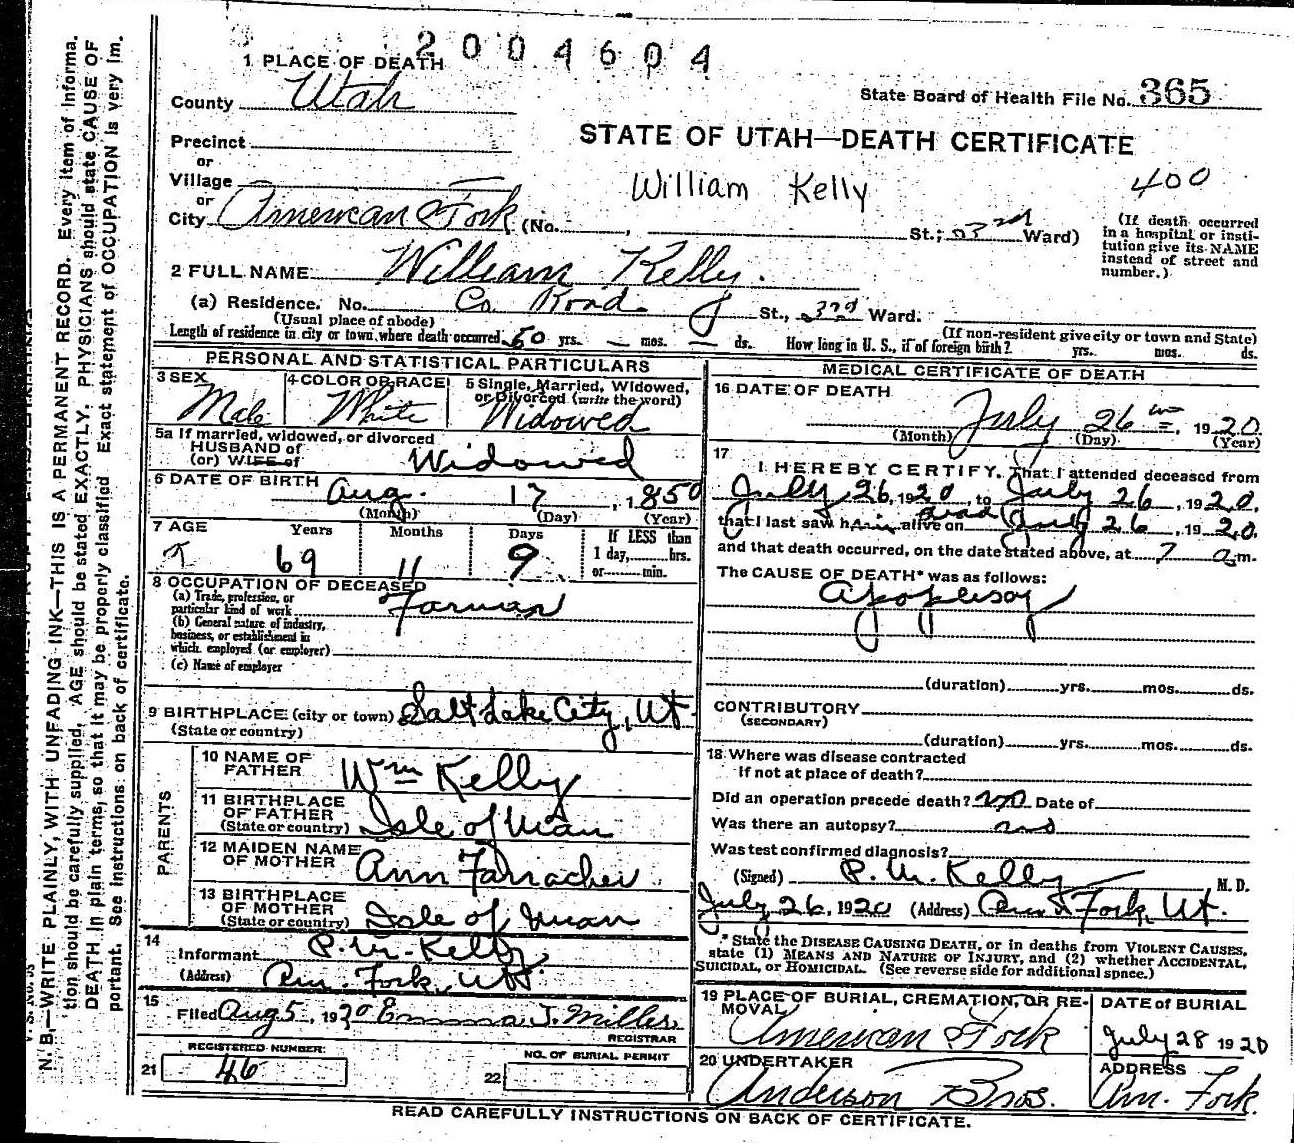 2004604
1 PLACE OF DEATH
County Utah
State Board of Health File No. 365
STATE OF UTAH—DEATH CERTIFICATE
Precinct
or
Village
or
City American Fork (No. , St.; 3rd Ward)
William Kelly
400
(If death occurred in a hospital or institution give its NAME instead of street and number.)
2 FULL NAME William Kelly.
(a) Residence. No. Co. Road St., 3rd Ward.
(Usual place of abode)
(If non-resident give city or town and State)
Length of residence in city or town where death occurred 50 yrs. — mos. — ds. How long in U. S., if of foreign birth? yrs. mos. ds.
PERSONAL AND STATISTICAL PARTICULARS
3 SEX
Male
4 COLOR OR RACE
White
5 Single, Married, Widowed, or Divorced (write the word)
Widowed
5a If married, widowed, or divorced
HUSBAND of
(or) WIFE of
Widowed
6 DATE OF BIRTH
Aug. 17, 1850
(Month) (Day) (Year)
7 AGE
Years Months Days
69 11 9
If LESS than
1 day, hrs.
or min.
8 OCCUPATION OF DECEASED
(a) Trade, profession, or
particular kind of work
(b) General nature of industry,
business, or establishment in
which employed (or employer)
(c) Name of employer
9 BIRTHPLACE (city or town) Salt Lake City, Ut.
(State or country)
PARENTS
10 NAME OF FATHER Wm Kelly
11 BIRTHPLACE OF FATHER (State or country) Isle of Man
12 MAIDEN NAME OF MOTHER Ann
13 BIRTHPLACE OF MOTHER (State or country) Isle of Man
14
Informant P. M. Kelly
(Address) Am. Fork, Ut
15
Filed Aug 5, 1920 Emma J. Miller
REGISTRAR
REGISTERED NUMBER:
21 46
NO. OF BURIAL PERMIT
22
MEDICAL CERTIFICATE OF DEATH
16 DATE OF DEATH
July 26, 1920
(Month) (Day) (Year)
17
I HEREBY CERTIFY, That I attended deceased from
July 26, 1920, to July 26, 1920,
that I last saw him alive on dead July 26, 1920.
and that death occurred, on the date stated above, at 7 a m.
The CAUSE OF DEATH* was as follows:
Apoplexy
(duration) yrs. mos. ds.
CONTRIBUTORY
(SECONDARY)
(duration) yrs. mos. ds.
18 Where was disease contracted
if not at place of death?
Did an operation precede death? no Date of
Was there an autopsy? no
Was test confirmed diagnosis?
(Signed) P. M. Kelly M. D.
July 26, 1920 (Address) Am Fork, Ut.
* State the DISEASE CAUSING DEATH, or in deaths from VIOLENT CAUSES,
state (1) MEANS AND NATURE OF INJURY, and (2) whether ACCIDENTAL,
SUICIDAL, or HOMICIDAL. (See reverse side for additional space.)
19 PLACE OF BURIAL, CREMATION, OR REMOVAL
American Fork
DATE of BURIAL
July 28 1920
20 UNDERTAKER
Anderson Bros.
ADDRESS
Am. Fork.
READ CAREFULLY INSTRUCTIONS ON BACK OF CERTIFICATE.
N. B.—WRITE PLAINLY, WITH UNFADING INK—THIS IS A PERMANENT RECORD. Every item of informa-
tion should be carefully supplied. AGE should be stated EXACTLY. PHYSICIANS should state CAUSE OF
DEATH in plain terms, so that it may be properly classified. Exact statement of OCCUPATION is very im-
portant. See instructions on back of certificate.